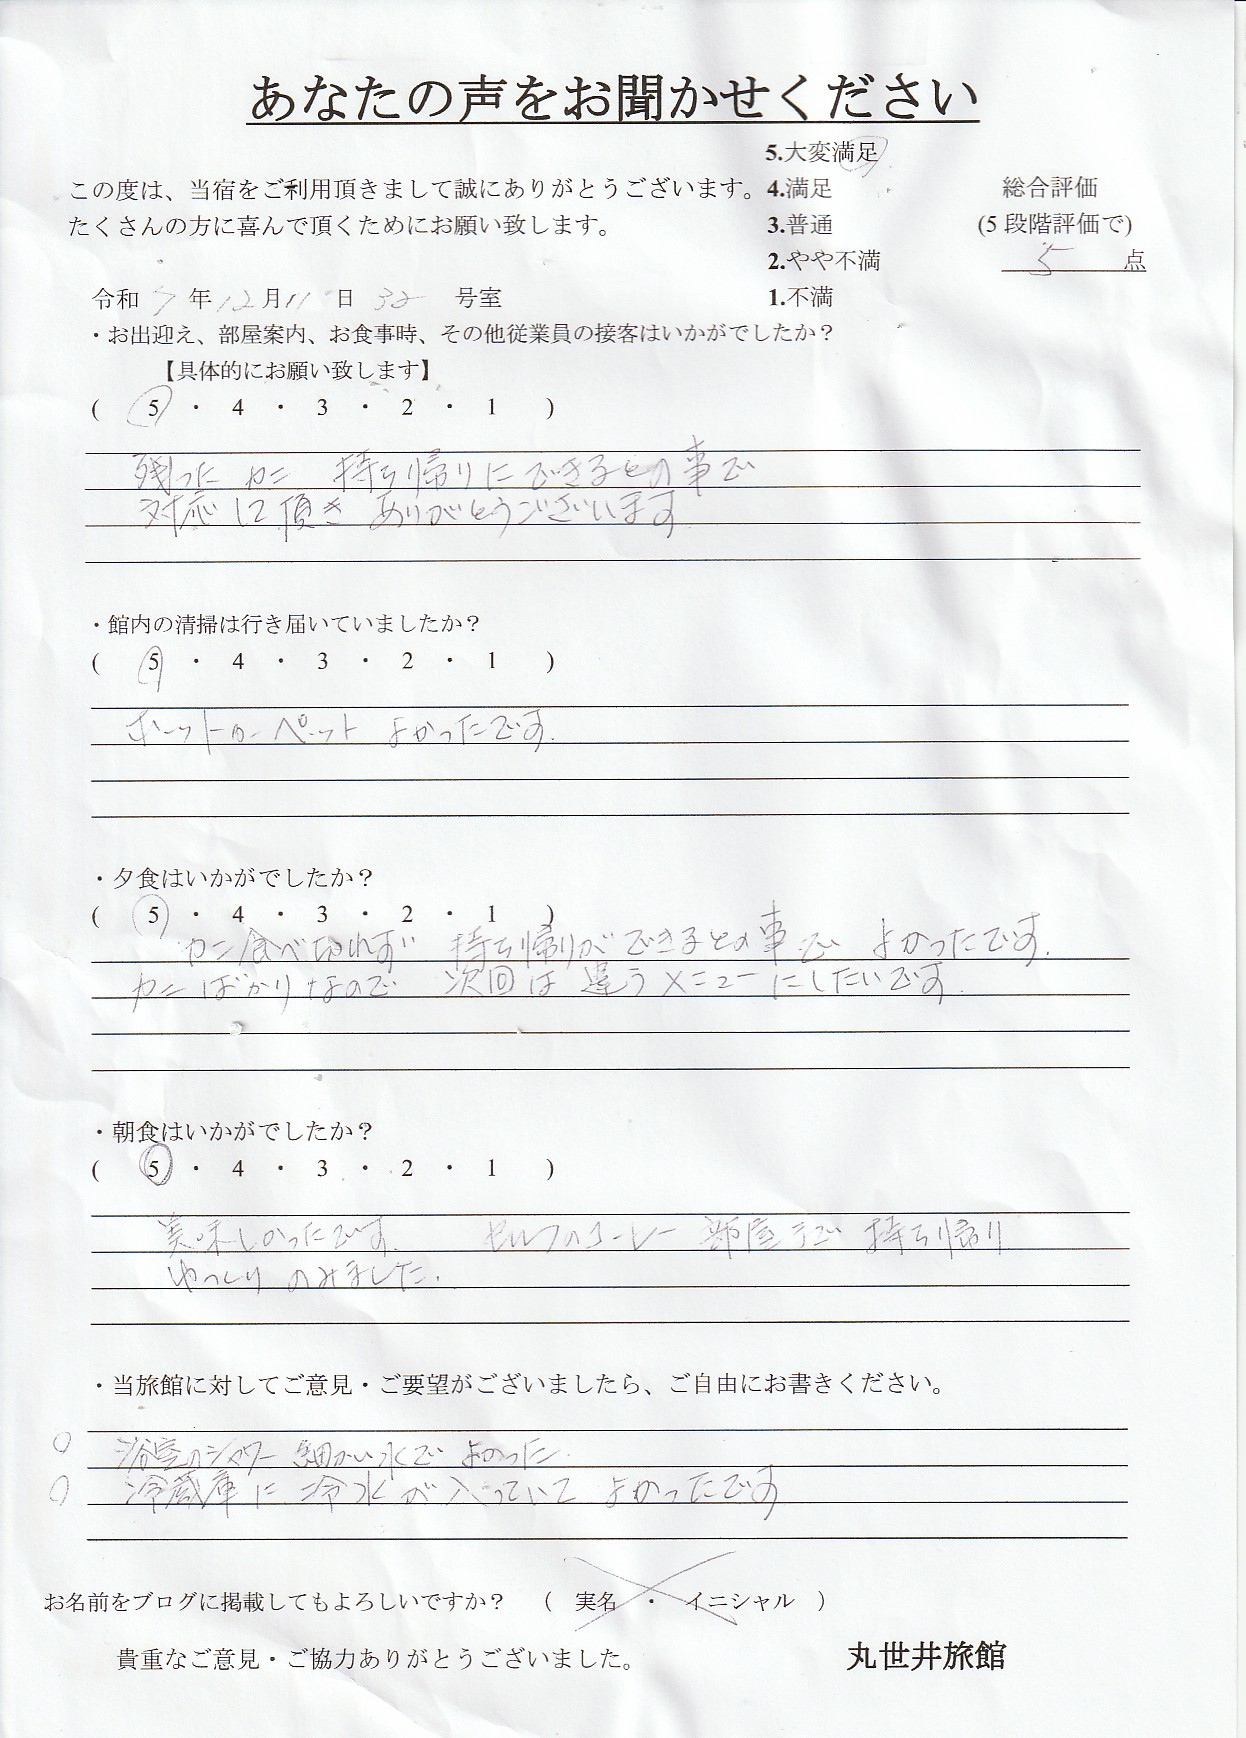 あなたの声をお聞かせください
5.大変満足
この度は、当宿をご利用頂きまして誠にありがとうございます。 4.満足 総合評価
たくさんの方に喜んで頂くためにお願い致します。 3.普通 (5段階評価で)
2.やや不満 5 点
令和 7 年 12 月 11 日 32 号室 1.不満
・お出迎え、部屋案内、お食事時、その他従業員の接客はいかがでしたか？
【具体的にお願い致します】
( 5 ・ 4 ・ 3 ・ 2 ・ 1 )
残ったカニ 持ち帰りにできるとの事で
対応して頂き ありがとうございます
・館内の清掃は行き届いていましたか？
( 5 ・ 4 ・ 3 ・ 2 ・ 1 )
ホットカーペット よかったです.
・夕食はいかがでしたか？
( 5 ・ 4 ・ 3 ・ 2 ・ 1 )
カニ食べ切れず 持ち帰りができるとの事で よかったです.
カニばかりなので 次回は違うメニューにしたいです
・朝食はいかがでしたか？
( 5 ・ 4 ・ 3 ・ 2 ・ 1 )
美味しかったです. セルフのコーヒー 部屋まで 持ち帰り
ゆっくり のみました.
・当旅館に対してご意見・ご要望がございましたら、ご自由にお書きください。
○ 浴室のシャワー 細かい水で よかった.
○ 冷蔵庫に 冷水が入っていて よかったです
お名前をブログに掲載してもよろしいですか？ ( 実名 ・ イニシャル )
貴重なご意見・ご協力ありがとうございました。 丸世井旅館